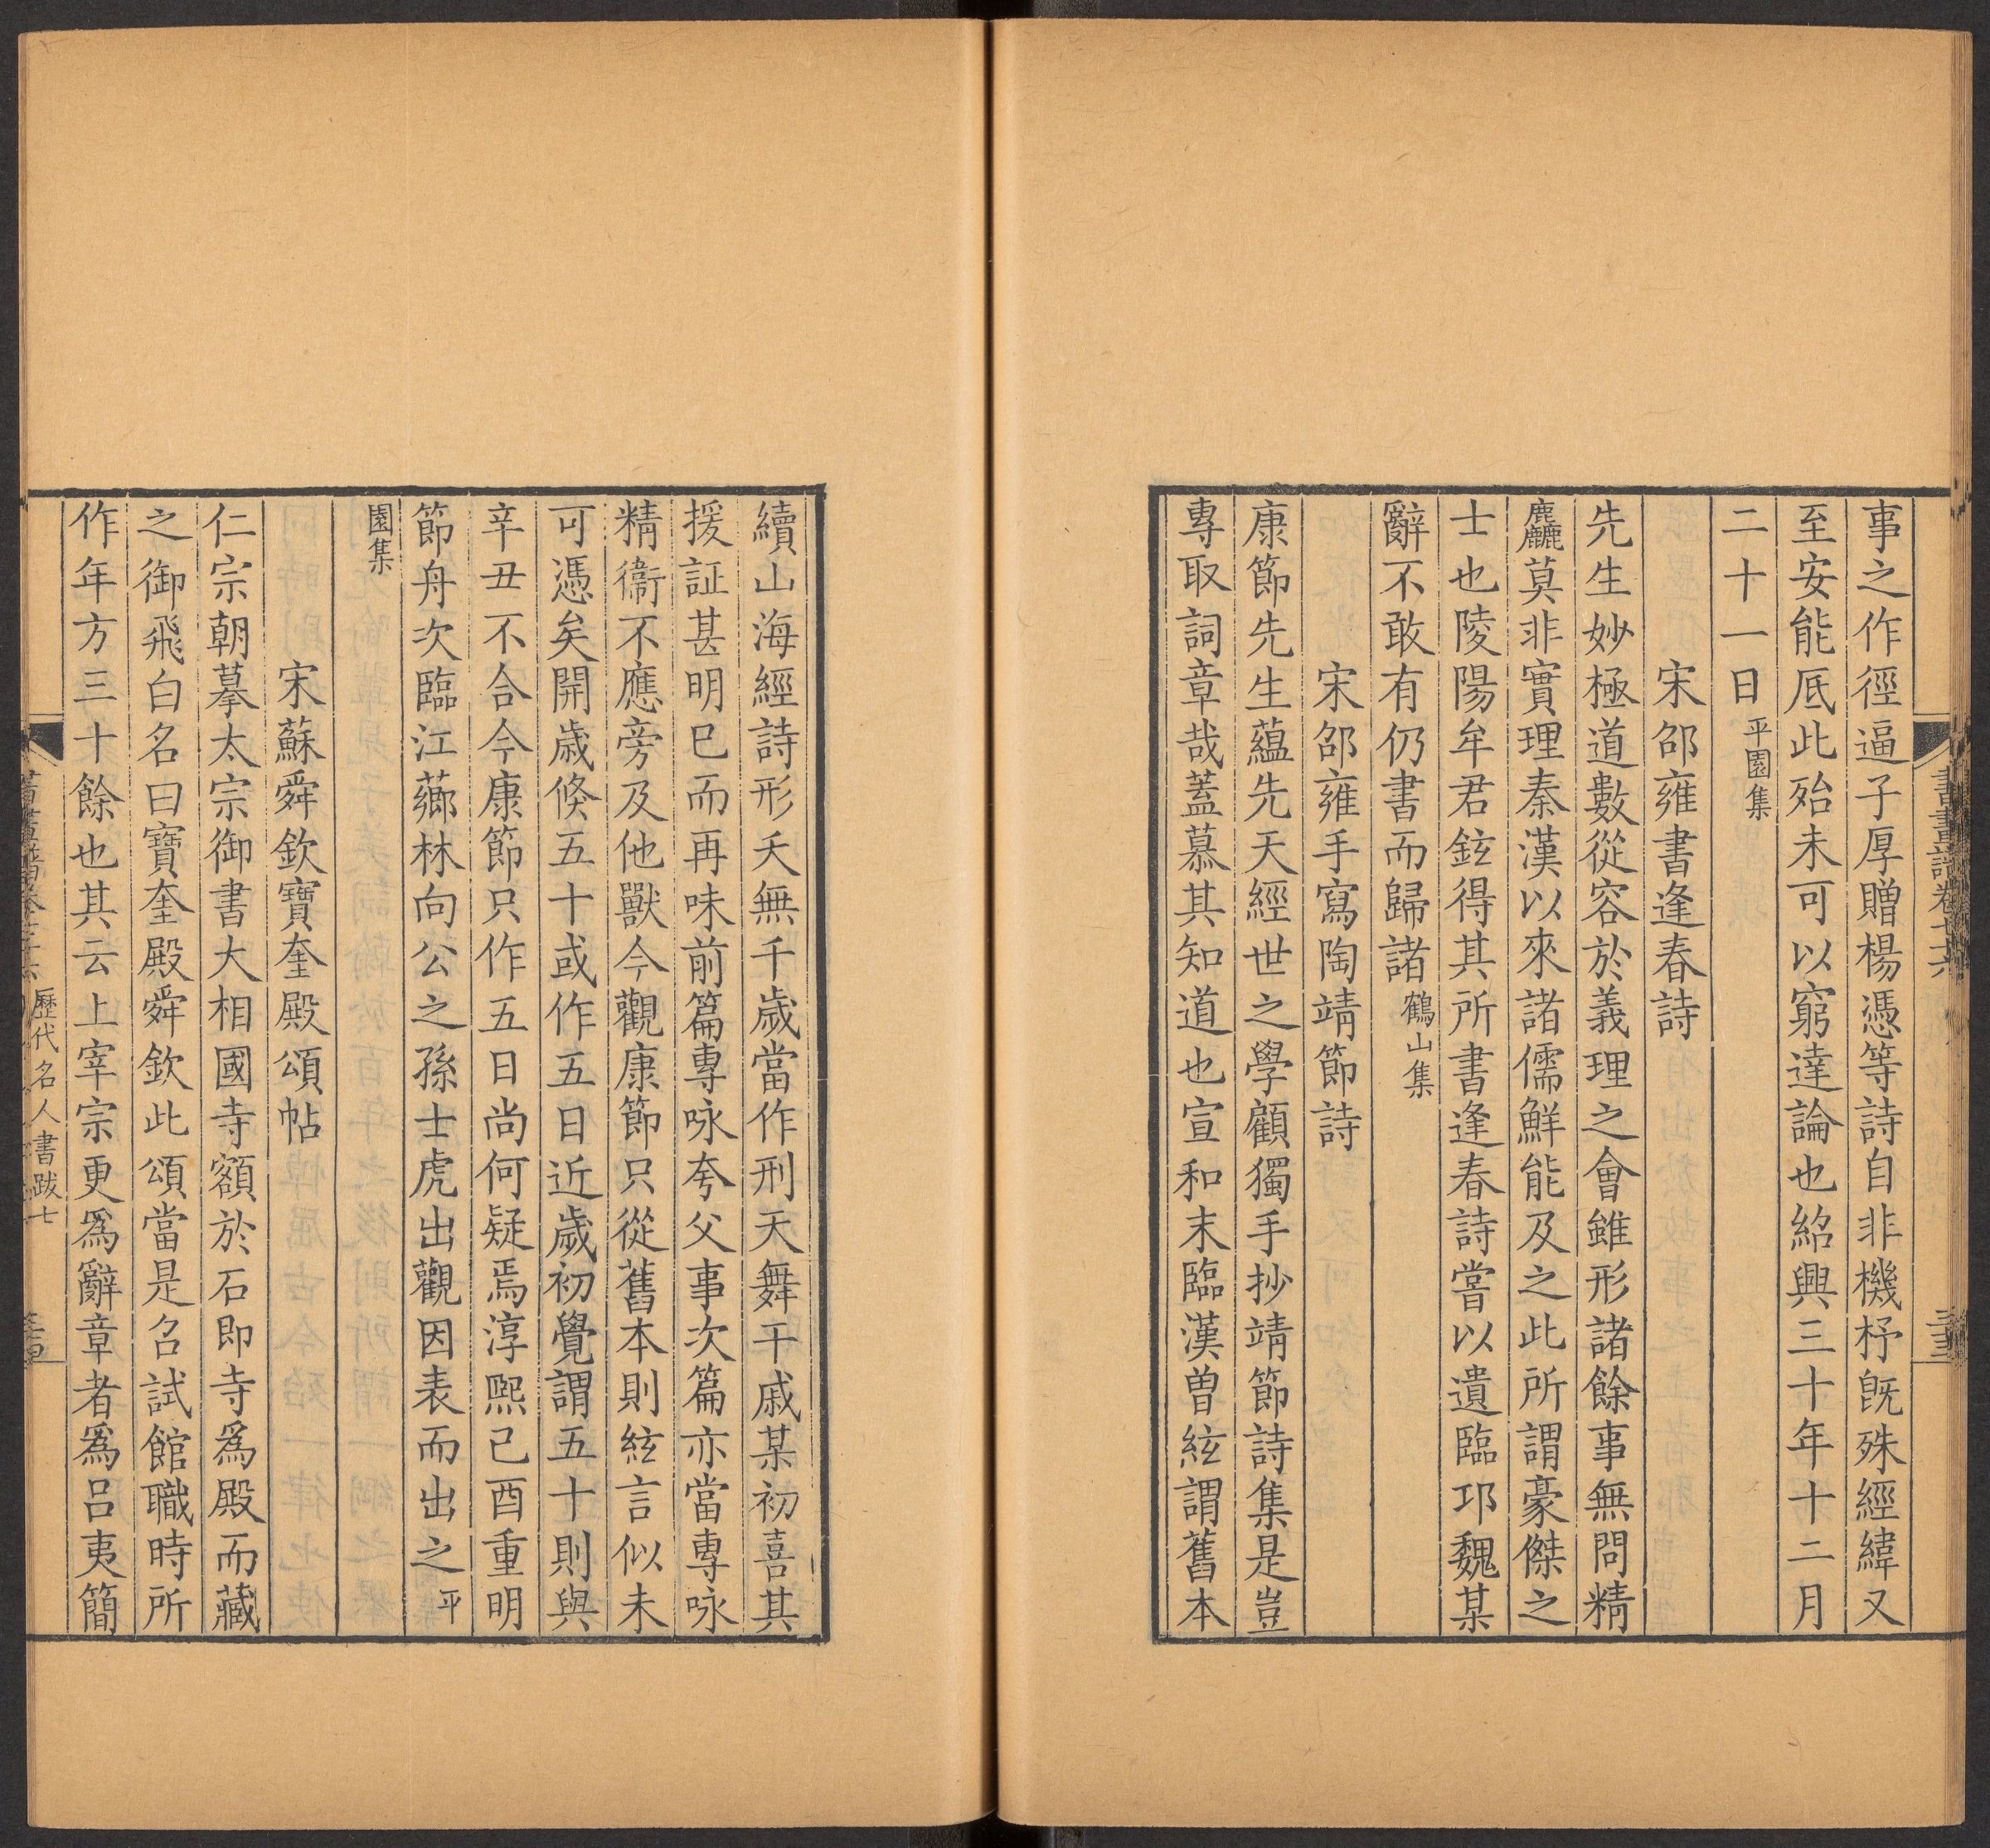 事之作徑逼子厚贈楊憑等詩自非機杼旣殊經緯又
至安能厎此殆未可以窮達論也紹興三十年十二月
二十一日平園集
宋邵雍書逢春詩
先生妙極道數從容於義理之會雖形諸餘事無問精
麤莫非實理秦漢以來諸儒鮮能及之此所謂豪傑之
士也陵陽牟君鉉得其所書逢春詩嘗以遺臨邛魏某
辭不敢有仍書而歸諸鶴山集
宋邵雍手寫陶靖節詩
康節先生蘊先天經世之學顧獨手抄靖節詩集是豈
專取詞章哉蓋慕其知道也宣和末臨漢曾紘謂舊本
續山海經詩形夭無千歲當作刑天舞干戚某初喜其
援証甚明已而再味前篇專咏夸父事次篇亦當專咏
精衞不應旁及他獸今觀康節只從舊本則紘言似未
可憑矣開歲倐五十或作五日近歲初覺謂五十則與
辛丑不合今康節只作五日尚何疑焉淳熙己酉重明
節舟次臨江薌林向公之孫士虎出觀因表而出之平
園集
宋蘇舜欽寶奎殿頌帖
仁宗朝摹太宗御書大相國寺額於石即寺爲殿而藏
之御飛白名曰寶奎殿舜欽此頌當是召試館職時所
作年方三十餘也其云上宰宗更爲辭章者爲呂夷簡
歷代名人書跋七